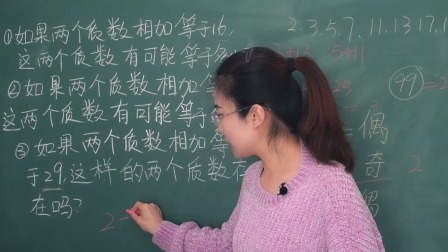 ①如果两个质数相加等于16,
这两个质数有可能等于
②如果两个质数相加等
这两个质数有可能等于
③如果两个质数相加等
于29,这样的两个质数存
在吗?
2
2.3.5.7.11.13.17.1
5+11
25
99=2
=偶
奇 2
偶